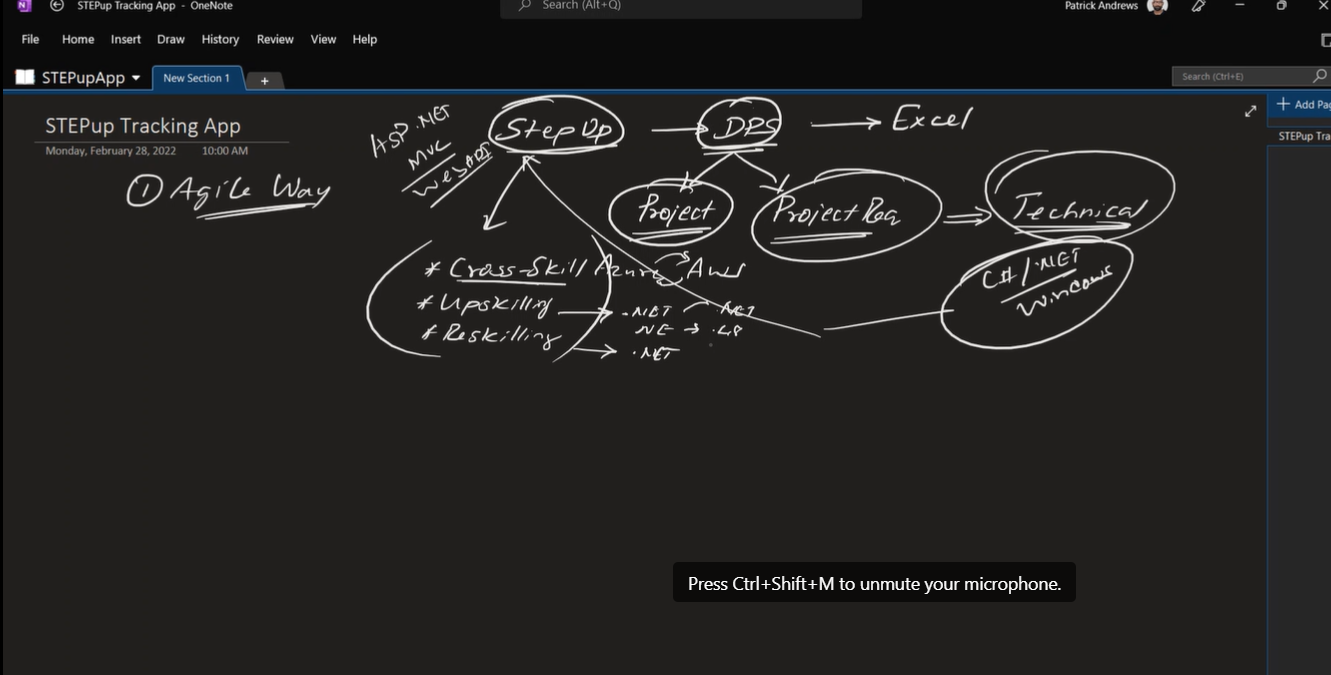 STEPup Tracking App - OneNote
Search (Alt+Q)
Patrick Andrews
File Home Insert Draw History Review View Help
STEPupApp
New Section 1
+
Search (Ctrl+E)
+ Add Pag
STEPup Tra
STEPup Tracking App
Monday, February 28, 2022 10:00 AM
① Agile Way
ASP.NET
MVC
WebAPI
StepUp
DPS
Excel
Project
Project Req
Technical
C#/.NET
Windows
* Cross-Skill Azure AWS
* Upskilling .NET .NET
* Reskilling
.NET
Press Ctrl+Shift+M to unmute your microphone.